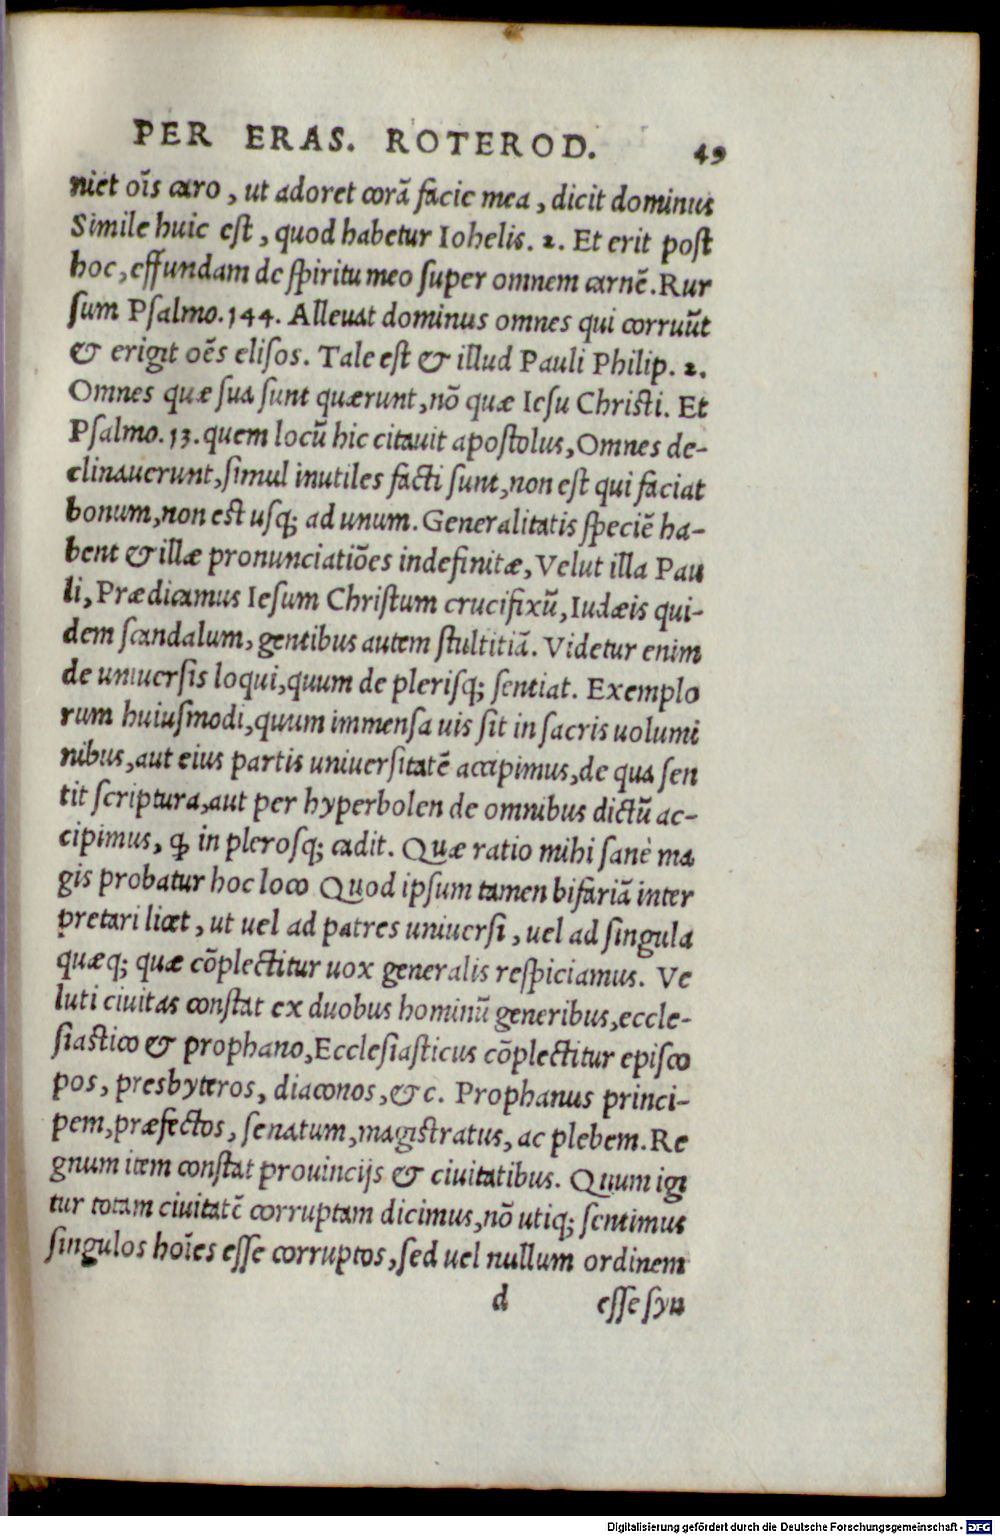 PER ERAS. ROTEROD. 49
niet oı̃s caro, ut adoret corã facie mea, dicit dominus
Simile huic est, quod habetur Iohelis. 2. Et erit post
hoc, effundam de spiritu meo super omnem carnẽ. Rur
sum Psalmo. 144. Alleuat dominus omnes qui corruũt
& erigit oẽs elisos. Tale est & illud Pauli Philip. 2.
Omnes quæ sua sunt quærunt, nõ quæ Iesu Christi. Et
Psalmo. 13. quem locũ hic citauit apostolus, Omnes de-
clinauerunt, simul inutiles facti sunt, non est qui faciat
bonum, non est usq; ad unum. Generalitatis speciẽ ha-
bent & illæ pronunciatiões indefinitæ, Velut illa Pau
li, Prædicamus Iesum Christum crucifixũ, Iudæis qui-
dem scandalum, gentibus autem stultitiã. Videtur enim
de uniuersis loqui, quum de plerisq; sentiat. Exemplo
rum huiusmodi, quum immensa uis sit in sacris uolumi
nibus, aut eius partis uniuersitatẽ accipimus, de qua sen
tit scriptura, aut per hyperbolen de omnibus dictũ ac-
cipimus, ꝙ in plerosq; cadit. Quæ ratio mihi sanè ma
gis probatur hoc loco Quod ipsum tamen bifariã inter
pretari licet, ut uel ad patres uniuersi, uel ad singula
quæq; quæ cõplectitur uox generalis respiciamus. Ve
luti ciuitas constat ex duobus hominũ generibus, eccle-
siastico & prophano, Ecclesiasticus cõplectitur episco
pos, presbyteros, diaconos, &c. Prophanus princi-
pem, præfectos, senatum, magistratus, ac plebem. Re
gnum item constat prouincijs & ciuitatibus. Quum igi
tur totam ciuitatẽ corruptam dicimus, nõ utiq; sentimus
singulos hoı̃es esse corruptos, sed uel nullum ordinem
d esse syn
Digitalisierung gefördert durch die Deutsche Forschungsgemeinschaft - DFG